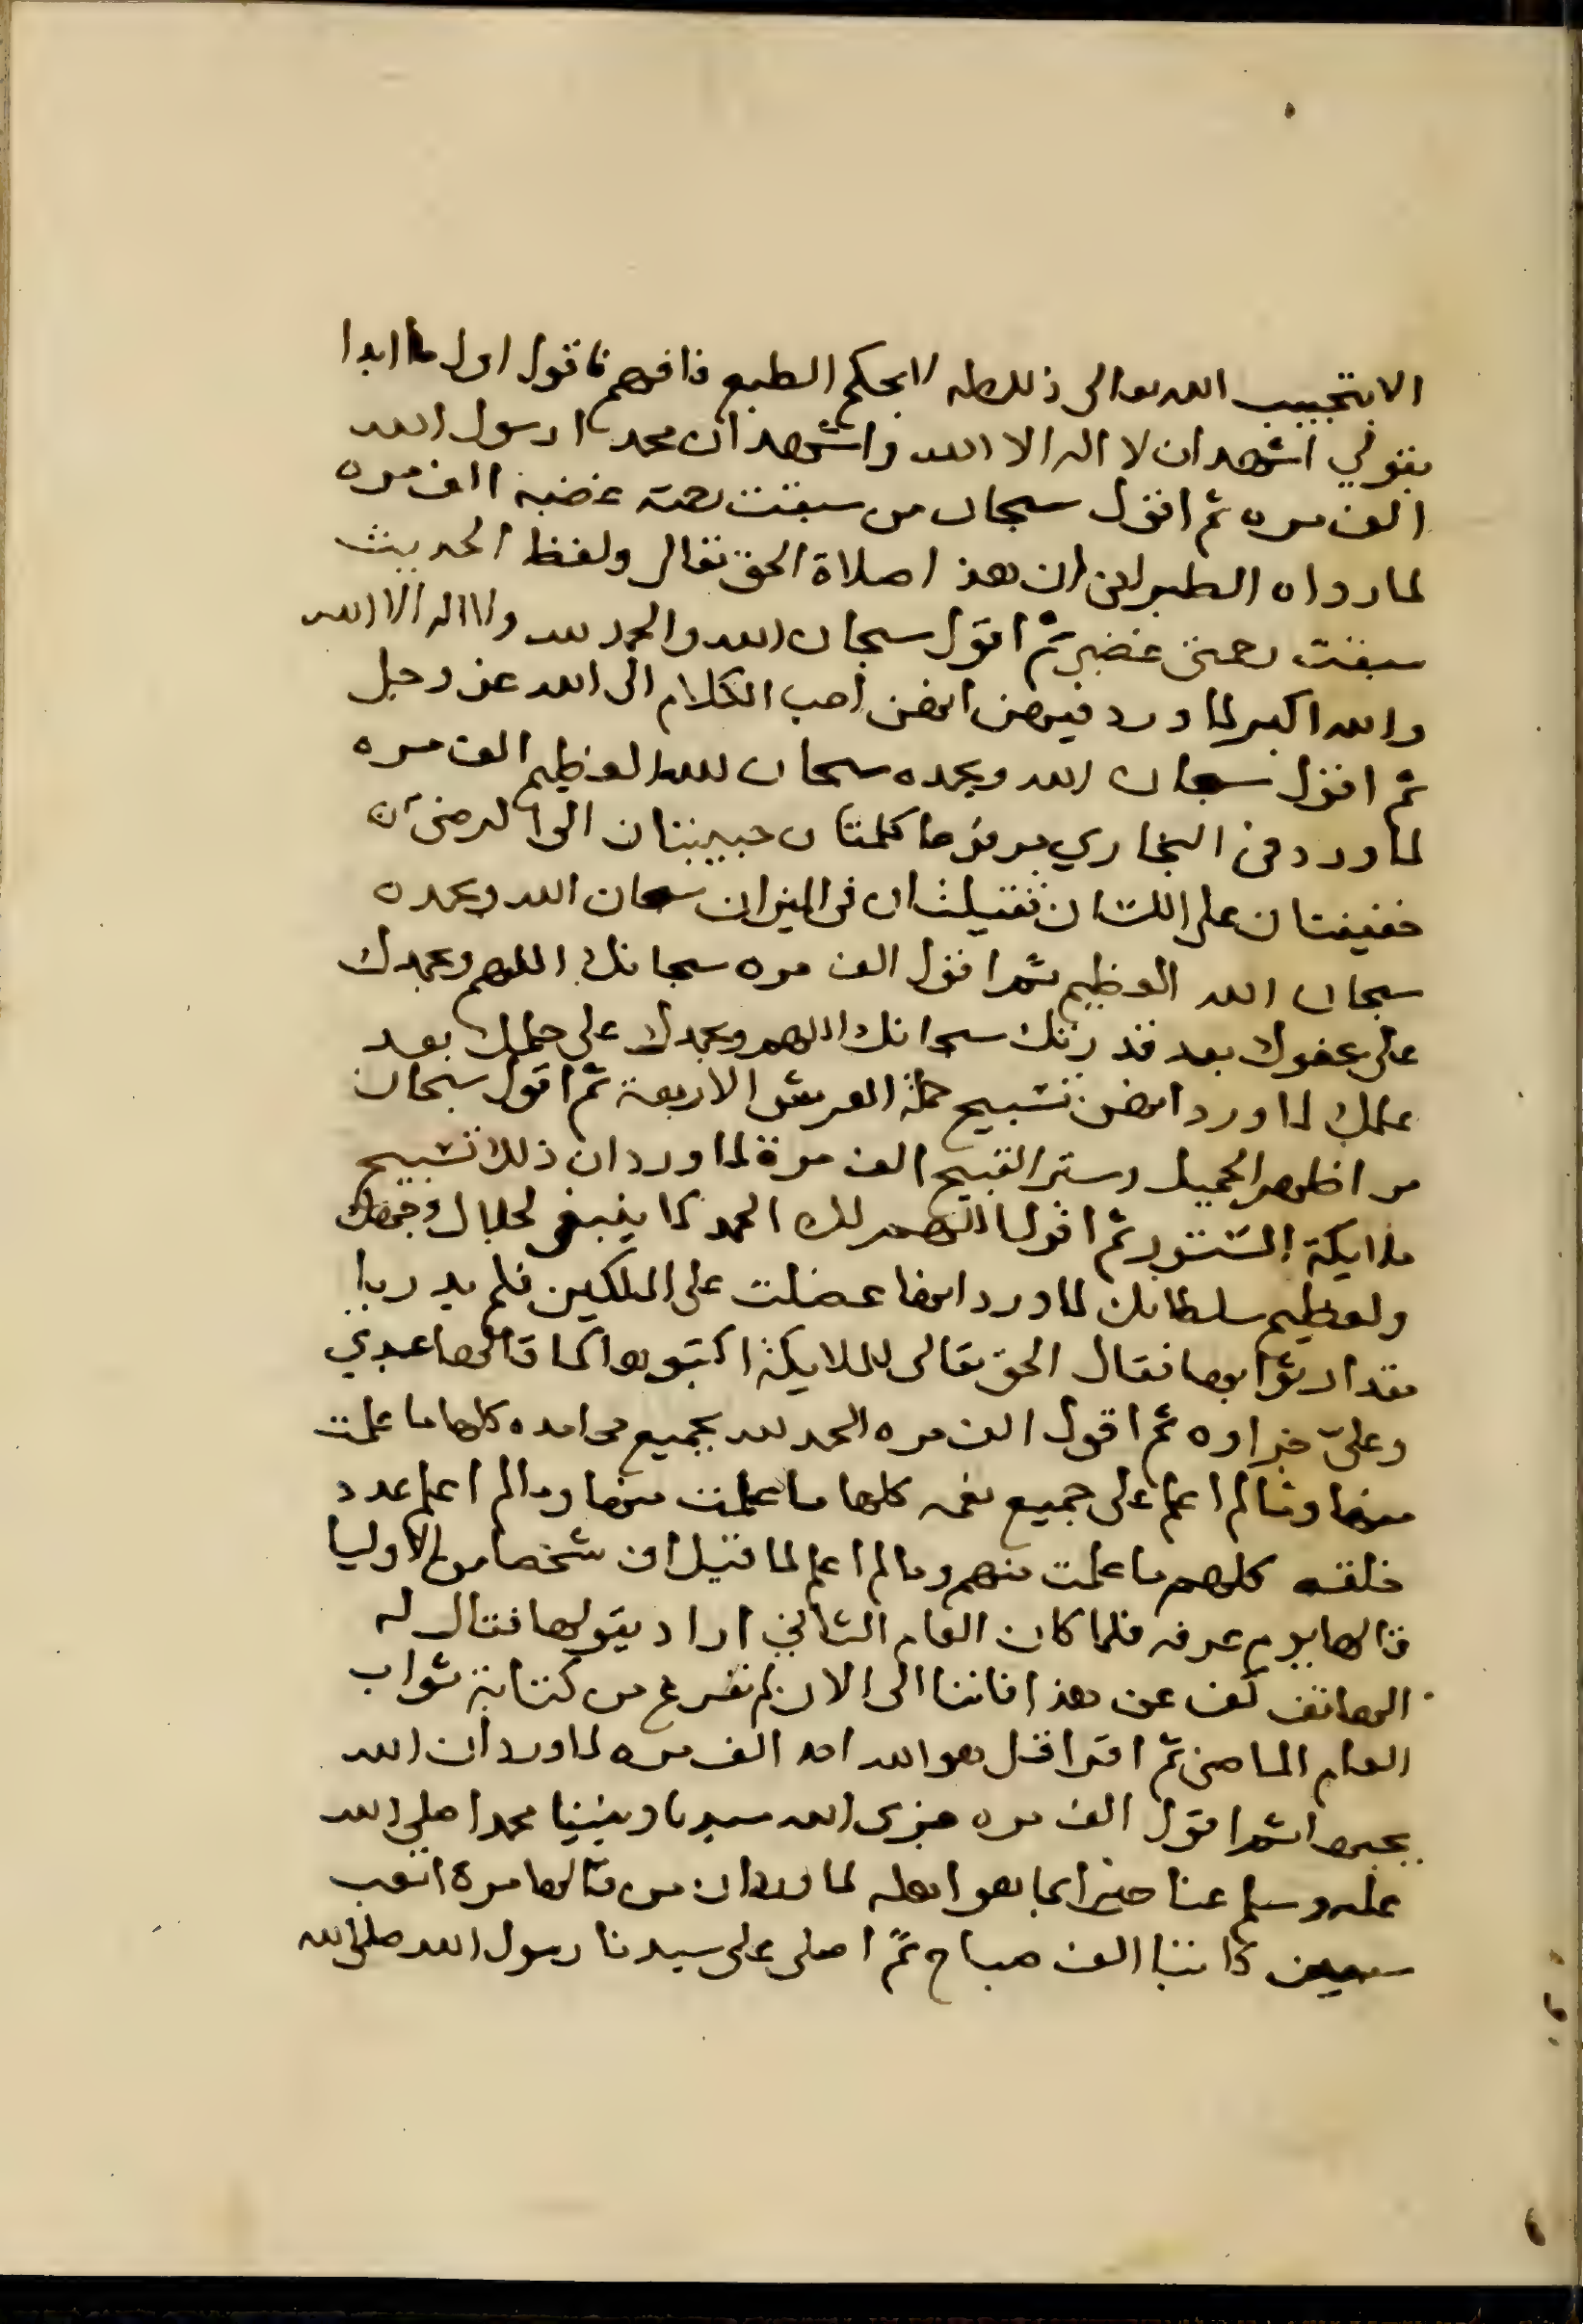 الا بتحبيب الله تعالى ذلك له لا بحكم الطبع فافهم فاقول اول ما ابدا
بقولي اشهد ان لا اله الا الله واشهد ان محمدا رسول الله
الف مره ثم اقول سبحان من سبقت رحمته غضبه الف مره
لما رواه الطبراني ان هذا صلاة الحق تعالى ولفظ الحديث
سبقت رحمتي غضبي ثم اقول سبحان الله والحمد لله ولا اله الا الله
والله اكبر لما ورد فيهن انهن احب الكلام الى الله عز وجل
ثم اقول سبحان الله وبحمده سبحان الله العظيم الف مره
لما ورد في البخاري مرفوعا كلمتان حبيبتان الى الرحمن
خفيفتان على اللسان ثقيلتان في الميزان سبحان الله وبحمده
سبحان الله العظيم ثم اقول الف مره سبحانك اللهم وبحمدك
على عفوك بعد قدرتك سبحانك اللهم وبحمدك على حلمك بعد
علمك لما ورد انهن تسبيح حملة العرش الاربعة ثم اقول سبحان
من اظهر الجميل وستر القبيح الف مرة لما ورد ان ذلك تسبيح
ملايكة الستور ثم اقول اللهم لك الحمد كما ينبغي لجلال وجهك
ولعظيم سلطانك لما ورد انها عضلت على الملكين فلم يدريا
مقدار ثوابها فقال الحق تعالى للملايكة اكتبوها كما قالها عبدي
وعليّ جزاوه ثم اقول الف مره الحمد لله بجميع محامده كلها ما علمت
منها وما لم اعلم على جميع نعمه كلها ما علمت منها وما لم اعلم عدد
خلقه كلهم ما علمت منهم وما لم اعلم لما قيل ان شخصا من الاوليا
قالها يوم عرفه فلما كان العام الثاني اراد يقولها فقال له
الهاتف كف عن هذا فاننا الى الان لم نفرغ من كتابة ثواب
العام الماضي ثم اقرا قل هو الله احد الف مره لما ورد ان الله
يحبها ثم اقول الف مره جزى الله سيدنا ونبينا محمدا صلى الله
عليه وسلم عنا خيرا بما هو اهله لما ورد ان من قالها مرة اتعب
سبعين كاتبا الف صباح ثم اصلى على سيدنا رسول الله صلى الله